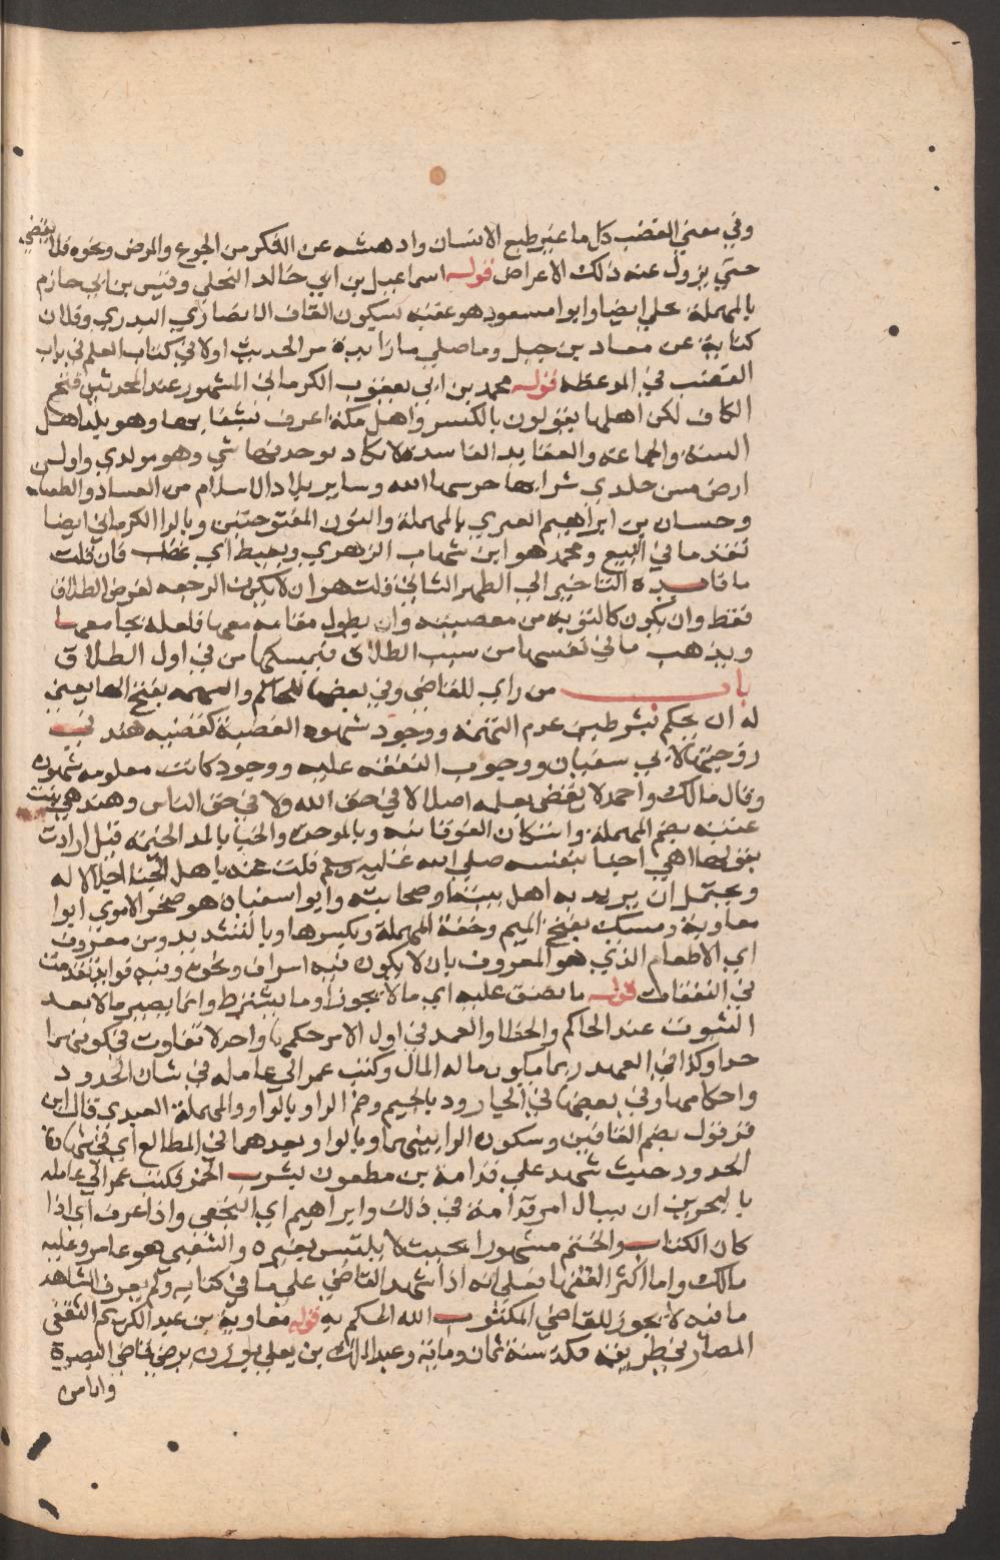 وفي معني الغضب كل ما غير طبع الانسان وادهشه عن الفكر من الجوع والمرض ونحوه فلا يقضي
حتي يزول عنه ذلك الاعراض قوله اسماعيل بن ابي خالد البجلي وقيس بن ابي حازم
بالمهملة بجلي ايضا وابوا مسعود هو عقبة بسكون القاف الانصاري البدري وفلان
كناية عن معاد بن جبل وما صلي مازايدة مر الحديث اولا في كتاب العلم في باب
الغضب في الموعظة قوله محمد بن ابي يعقوب الكرماني المشهور عند المحدثين فتح
الكاف لكن اهلها يقولون بالكسر واهل مكة اعرف بشعابها وهو بلد اهل
السنة والجماعة والعقايد الفاسدة لا يكاد يوجد فيها شي وهو مولدي واول
ارض مس جلدي ترابها حرسها الله وساير بلاد الاسلام من الفساد والطغيان
وحسان بن ابراهيم العنزي بالمهملة والنون المفتوحتين وبالزا الكرماني ايضا
تقدما في البيع ومحمد هو ابن شهاب الزهري وتغيظ اي غضب فان قلت
ما فايدة التاخير الي الطهر الثاني قلت هو ان لا يكون الرجعه لغرض الطلاق
فقط وان يكون كالتوبه من معصيته وان يطول مقامه معها فلعله يجامعها
ويذهب ما في نفسها من سبب الطلاق فيمسكها من في اول الطلاق
باب من راي للقاضي وفي بعضها للحاكم والتهمه بفتح الها يعني
له ان يحكم بشرطين عدم التهمة ووجود شهرة القضية كقضيه هند في
زوجيتها لابي سفيان ووجوب النفقه عليه ووجود كانت معلومه مشهوره
وقال مالك واحمد لا يقضي بعلمه اصلا لا في حق الله ولا في حق الناس وهند هي بنت
عتبة بضم المهملة واسكان الفوقانيه وبالموحدة والخبا بالمد الخيمه قيل ارادت
بقولها اهل اخبا نفسه صلي الله عليه وسلم فكنت عنه باهل الخبا اجلالا له
ويحتمل ان يريد به اهل بيته او صحابته وابوا سفيان هو صخر الاموي ابوا
معاوية ومسك بفتح الميم وخفة المهملة وبكسرها وبالتشديد ومن معروف
اي الاطعام الذي هو المعروف بان لا يكون فيه اسراف ونحوه وفيه فوايد تقدمت
في النفقات قوله ما يضيق عليه اي ما لا يجوز او ما يشترط وانما يصير مالا بعد
الثبوت عند الحاكم والخطا والعمد في اول الامر حكمها واحد لا تفاوت في كونهما
حدا وكذا في العمد ربما يكون ماله المال وكتب عمر الي عامله في شان الحدود
واحكامها وفي بعضها في الجارود بالجيم وضم الرا وبالواو والمهملة العبدي قال ابن
قرقول بضم القافين وسكون الرا بينهما وبالواو وبعدهما في المطالع اي في شهادة
الحدود حيث شهد علي قدامة بن مظعون بشرب الخمر فكتب عمر الي عامله
بالبحرين ان يسال امر قدامة في ذلك وابراهيم اي النخعي واذا عرف اي اذا
كان الكتاب والختم مشهورا بحيث لا يلتبس بغيره والشعبي هو عامر وعليه
مالك واما اكثر الفقها فعلي انه اذا شهد القاضي علي ما في كتابه ولم يعرف الشاهد
ما فيه لا يجوز للقاضي المكتوب الله الحكم به قوله معاوية بن عبد الكريم الثقفي
المصار في طريقه مكة سنة ثمان ومائة وعبد الملك بن يعلي بوزن يرضي قاضي البصرة
واياس